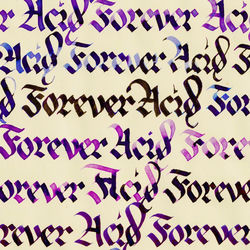 Acid Forever Acid
Acid Forever Acid
Forever Acid
Forever Acid Forever
Forever Acid Forever
Forever Acid Forever